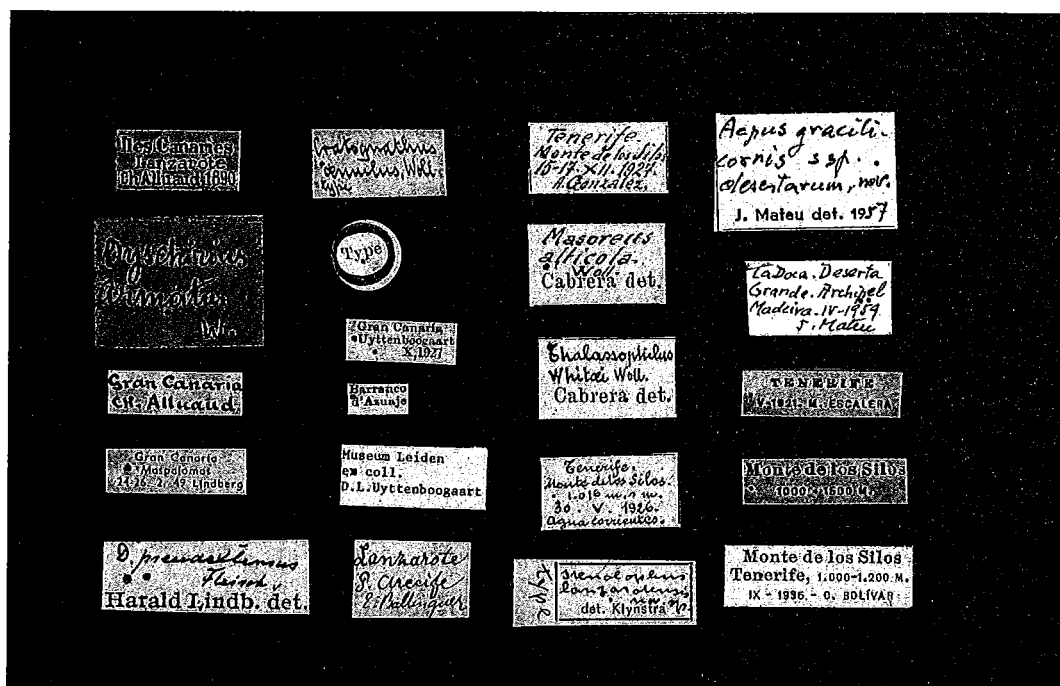 Iles Canaries
Lanzarote
Ch. Alluaud 1890
Dyschirius
Wl.
Gran Canaria
Ch. Alluaud
Gran Canaria
Maspalomas
21-26. 2. 49 Lindberg
D.
Harald Lindb. det.
Cratognathus
Woll.
type
Type
Gran Canaria
Uyttenboogaart
X, 1927
Barranco
d'Azuaje
Museum Leiden
ex coll.
D.L. Uyttenboogaart
Lanzarote
P. Arecife
E. Ballinguer
Tenerife
Monte de los Silos
15-17. XII. 1927.
H. Gonzalez.
Masoreus
alticola.
Woll.
Cabrera det.
Thalassophilus
Whitei Woll.
Cabrera det.
Tenerife.
Monte de los Silos.
1.016 m. s. m.
30. V. 1926.
Agua corrientes.
Type
det. Klynstra
Aepus gracili-
cornis ssp.
desertarum, nov.
J. Mateu det. 1957
La Doca. Deserta
Grande. Archipel
Madeira. IV-1959
J. Mateu
TENERIFE
V.-1921.-M. ESCALERA
Monte de los Silos
1000-1500 M.
Monte de los Silos
Tenerife, 1.000-1.200 M.
IX - 1935 - O. BOLÍVAR